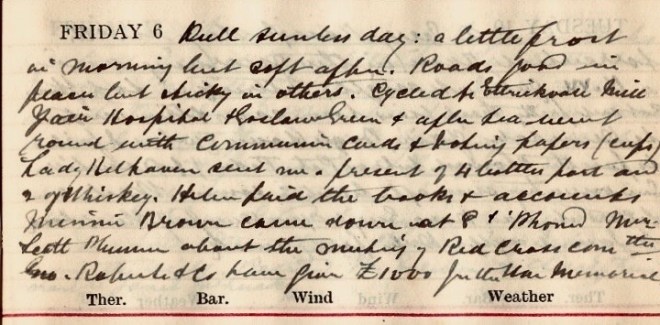 FRIDAY 6 Dull sunless day: a little frost
in morning but soft after. Roads good in
places but sticky in others. Cycled to Ettrickvale Mill
Hospital & Green & after tea went
round with Communion cards & voting papers (cups)
Lady Belhaven sent me a present of 4 bottles port and
2 of Whiskey. Helen paid the books & accounts
Minnie Brown came down at 8 & 'Phoned Mrs
Scott Plummer about the meeting of Red Cross com ttee
Geo. Roberts & Co have given £1000 for the War Memorial
Ther. Bar. Wind Weather